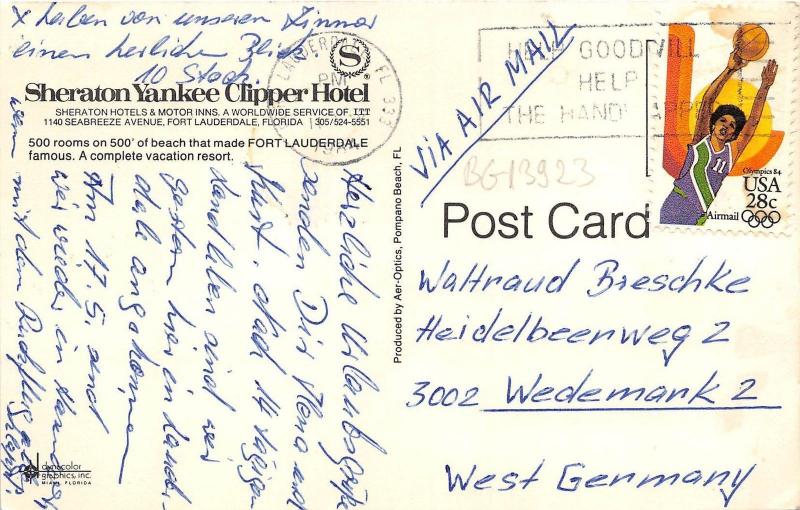 x haben von unseren Zimmer
einen herlichen Blick
10 Stock.
S
Sheraton Yankee Clipper Hotel®
SHERATON HOTELS & MOTOR INNS. A WORLDWIDE SERVICE OF ITT
1140 SEABREEZE AVENUE, FORT LAUDERDALE, FLORIDA 305/524-5551
500 rooms on 500' of beach that made FORT LAUDERDALE
famous. A complete vacation resort.
Herzliche Urlaubsgrüße
senden Dir Mona und
Kurt. Nach 14 tägigen
sind wir
gestern hier in Lauder-
dale angekommen
Am 17.5. sind
wir wieder in
wenn mit dem Rückflug
dynacolor
graphics, inc.
MIAMI, FLORIDA
Produced by Aer-Optics, Pompano Beach, FL
LAUDERDALE, FL 333
PM
GOODWILL
HELP
THE HANDICAPPED
VIA AIR MAIL
BG13923
Olympics 84
USA
28c
Airmail
11
Post Card
Waltraud Breschke
Heidelbeerweg 2
3002 Wedemark 2
West Germany